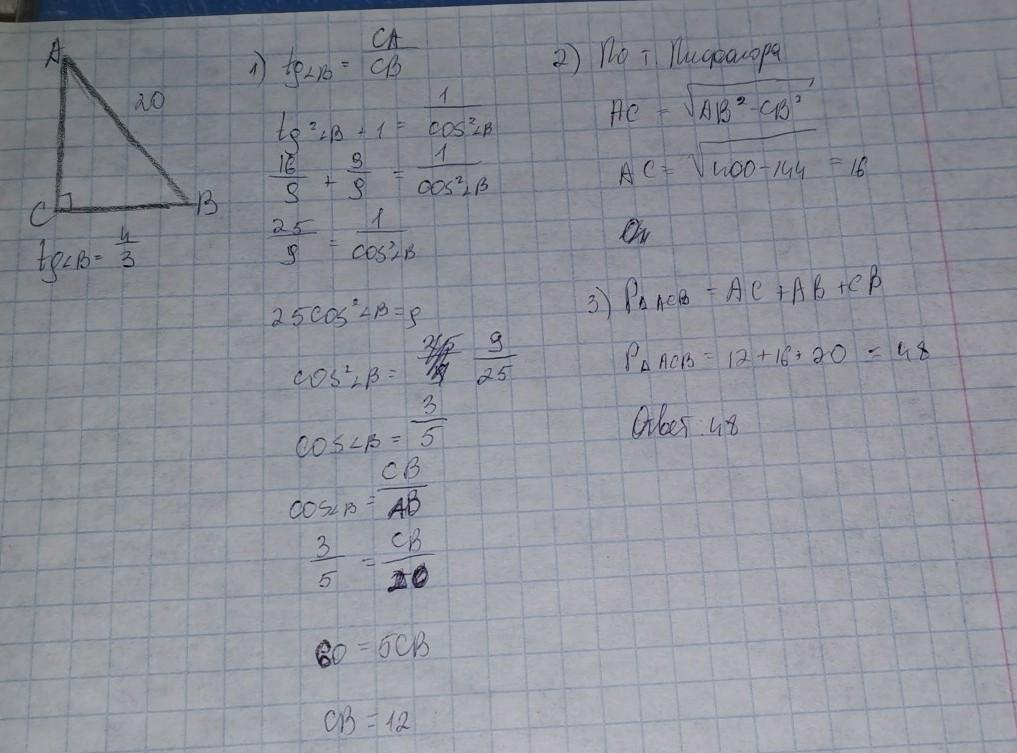 A
20
C
B
tg∠B = 4/3
1) tg∠B = CA/CB
tg²∠B + 1 = 1/cos²∠B
16/9 + 9/9 = 1/cos²∠B
25/9 = 1/cos²∠B
25cos²∠B = 9
cos²∠B = 9/25
cos∠B = 3/5
cos∠B = CB/AB
3/5 = CB/20
60 = 5CB
CB = 12
2) По т. Пифагора
AC = √AB² - CB²
AC = √400 - 144 = 16
3) P△ACB = AC + AB + CB
P△ACB = 12 + 16 + 20 = 48
Ответ: 48